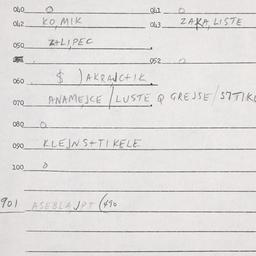 040 0 041 0
042 KO,MIK 043 ZAKA,LISTE
050 Z+LIPEC
052 0
060 $ )AKRAJC+IK
070 ANAMEJCE /LUSTE Q GREJSE/S7TIK
080 0
090 KLEJNS+TIKELE
100 0
901 ASEBLAJPT (490